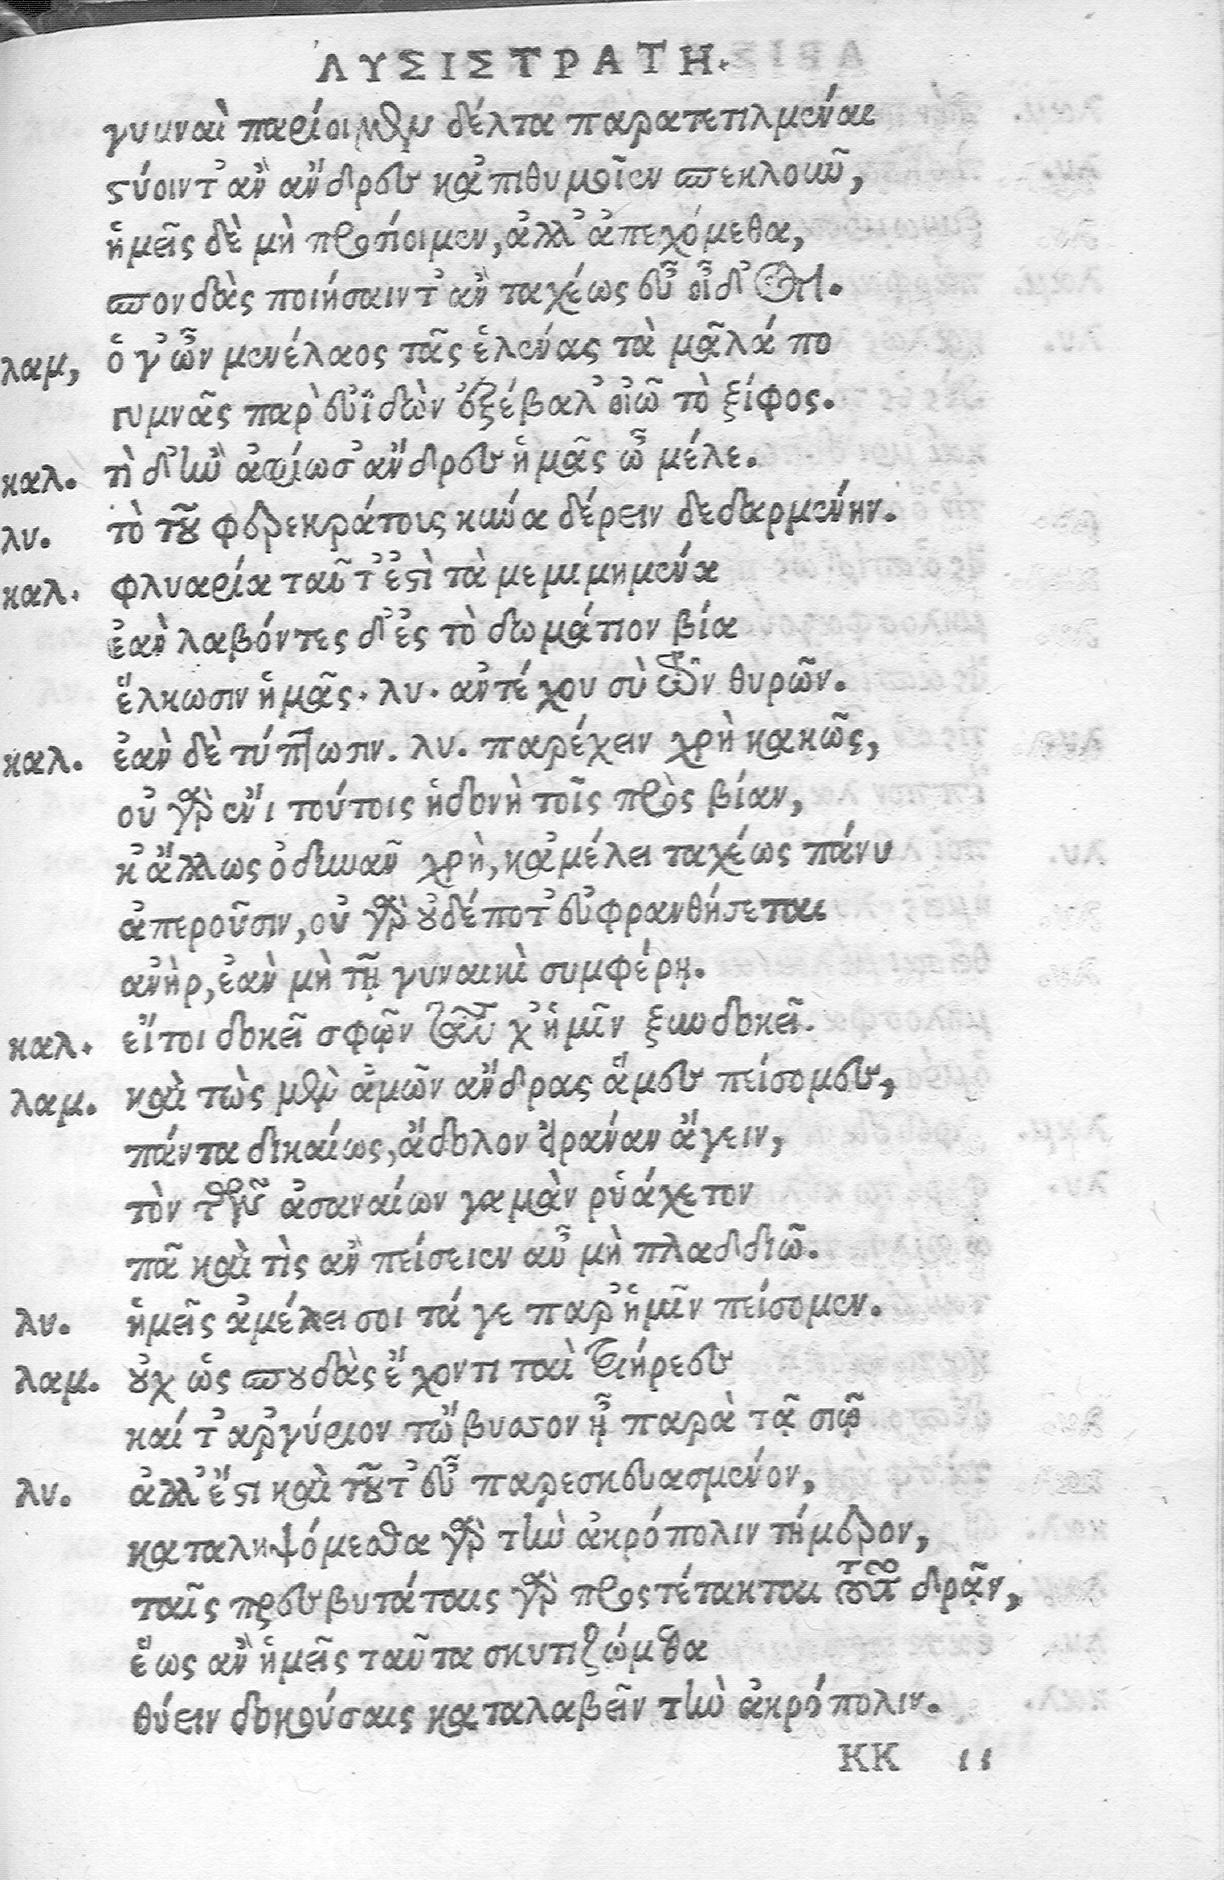 ΛΥΣΙΣΤΡΑΤΗ.
γυμναὶ παρίοιμεν δέλτα παρατετιλμέναι
στύοιντ' ἂν ἄνδρες κἀπιθυμοῖεν σπεκλοῦν,
ἡμεῖς δὲ μὴ προσίοιμεν, ἀλλ' ἀπεχόμεθα,
σπονδὰς ποιήσαιντ' ἂν ταχέως εὖ οἶδ' ὅτι.
λαμ, ὁ γ' ὦν μενέλαος τᾶς ἑλένας τὰ μᾶλά πο
γυμνᾶς παρευϊδὼν ἐξέβαλ' οἰῶ τὸ ξίφος.
καλ. τὶ δ' ἢν ἀφίωσ' ἄνδρες ἡμᾶς ὦ μέλε.
λυ. τὸ τοῦ φερεκράτους κύνα δέρειν δεδαρμένην.
καλ. φλυαρία ταῦτ' ἐστὶ τὰ μεμιμημένα
ἐὰν λαβόντες δ' ἐς τὸ δωμάτιον βία
ἕλκωσιν ἡμᾶς. λυ. ἀντέχου σὺ τῶν θυρῶν.
καλ. ἐὰν δὲ τύπτωσιν. λυ. παρέχειν χρὴ κακῶς,
οὐ γὰρ ἔνι τούτοις ἡδονὴ τοῖς πρὸς βίαν,
κἄλλως ὀδυνᾶν χρὴ, κἀμέλει ταχέως πάνυ
ἀπεροῦσιν, οὐ γὰρ οὐδέποτ' εὐφρανθήσεται
ἀνὴρ, ἐὰν μὴ τῇ γυναικὶ συμφέρῃ.
καλ. εἴτοι δοκεῖ σφῷν ταῦτα χ' ἡμῖν ξυνδοκεῖ.
λαμ. καὶ τὼς μὲν ἁμῶν ἄνδρας ἅμες πείσομες,
πάντα δικαίως, ἄδολον εἰράναν ἄγειν,
τὸν τῶν ἀσαναίων γα μὰν ῥυάχετον
πᾶ καὶ τὶς ἂν πείσειεν αὖ μὴ πλαδδιῶ.
λυ. ἡμεῖς ἀμέλει σοι τά γε παρ' ἡμῖν πείσομεν.
λαμ. οὐχ ὡς σπουδὰς ἔχοντι ταὶ τριήρεες
καί τ' ἀργύριον τὤβυσσον ᾖ παρὰ τᾷ σιῷ
λυ. ἀλλ' ἔστι καὶ τοῦτ' εὖ παρεσκευασμένον,
καταληψόμεσθα γὰρ τὴν ἀκρόπολιν τήμερον,
ταῖς πρεσβυτάταις γὰρ προστέτακται τοῦτο δρᾷν,
ἕως ἂν ἡμεῖς ταῦτα σκυτιζώμεθα
θύειν δοκούσαις καταλαβεῖν τὴν ἀκρόπολιν.
KK ii